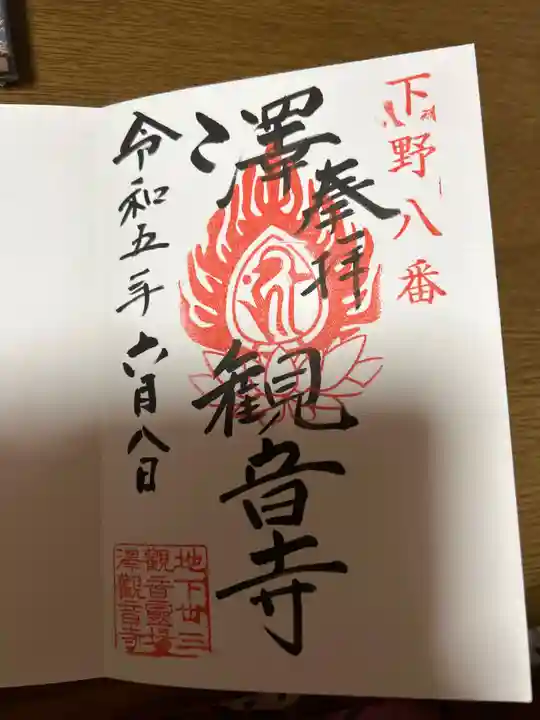 下野八番
奉拝
澤観音寺
令和五年六月八日
地下卄三
觀音霊場
澤觀音寺